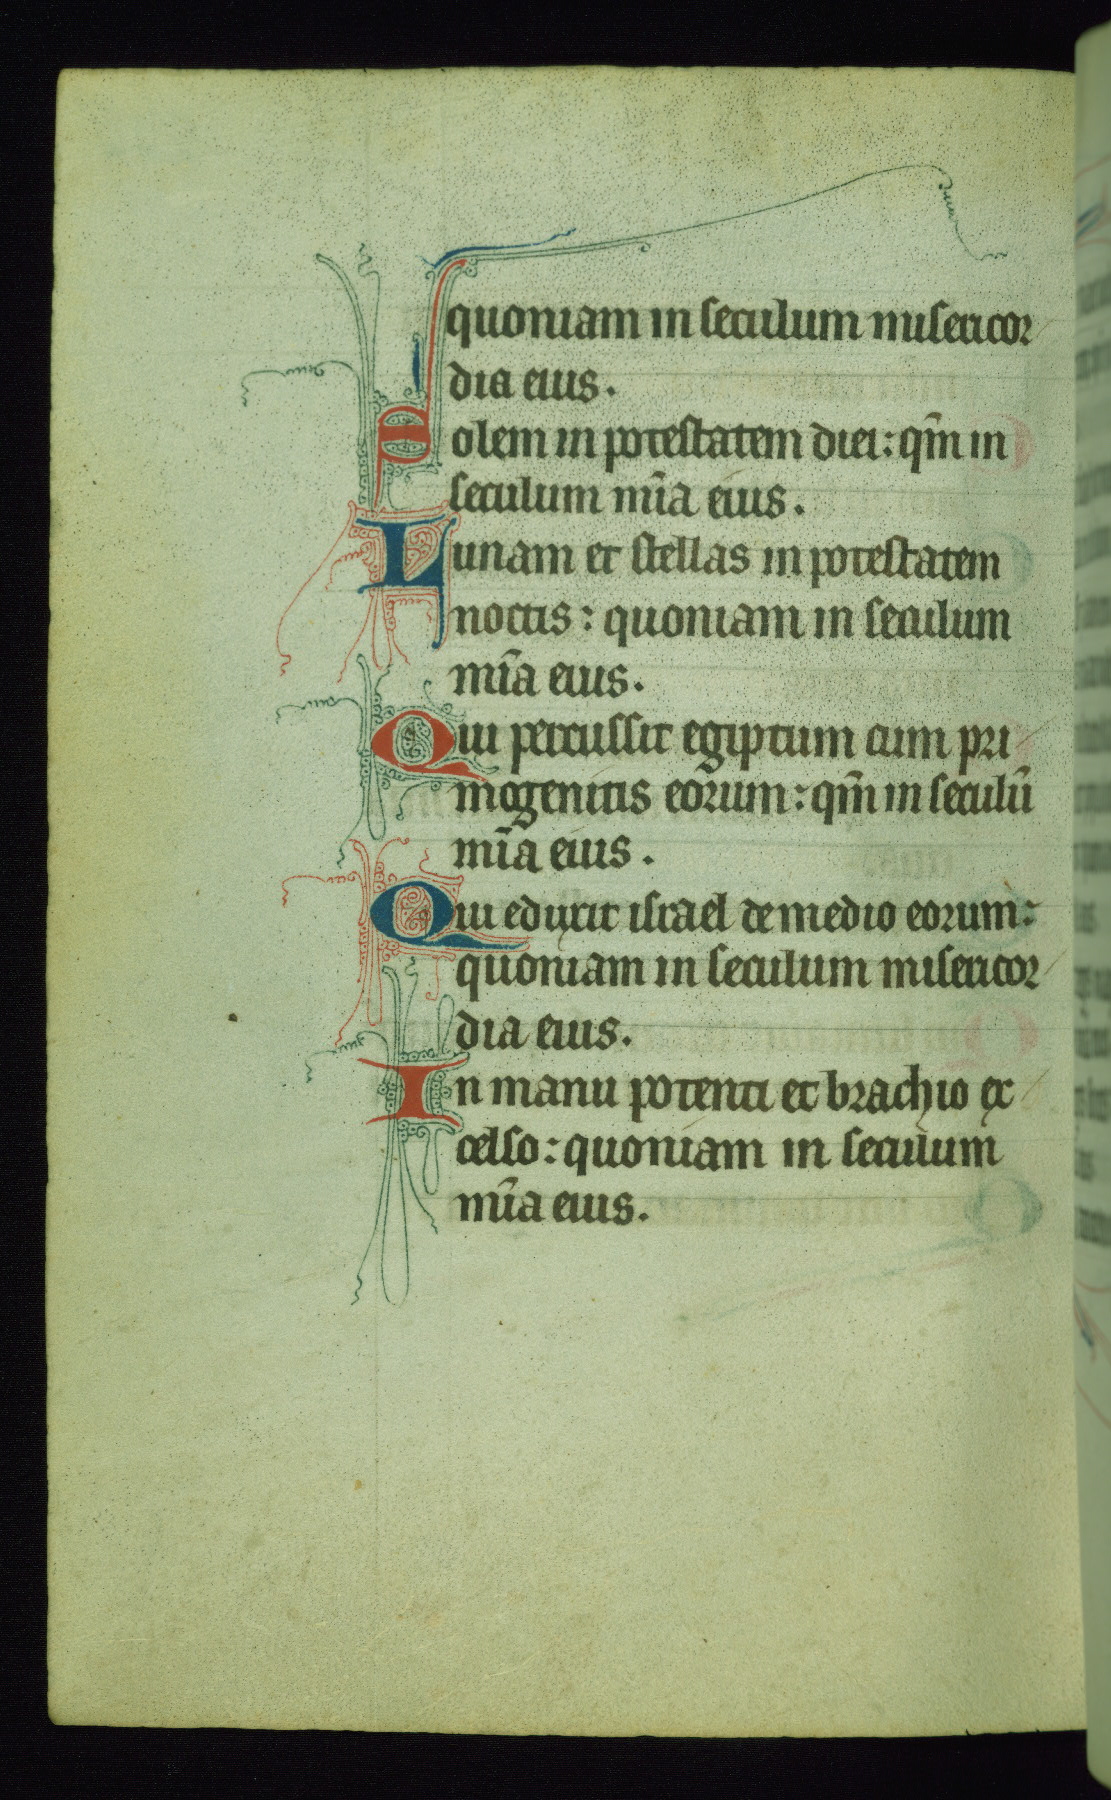 quoniam in seculum misericor
dia eius.
Solem in potestatem diei: qm̄ in
seculum mīa eius.
Lunam et stellas in potestatem
noctis: quoniam in seculum
mīa eius.
Qui percussit egiptum cum pri
mogenitis eorum: qm̄ in seculū
mīa eius.
Qui eduxit israel de medio eorum:
quoniam in seculum misericor
dia eius.
In manu potenti et brachio ex
celso: quoniam in seculum
mīa eius.